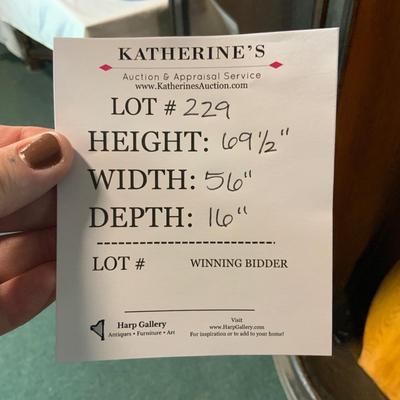 KATHERINE'S
Auction & Appraisal Service
www.KatherinesAuction.com
LOT # 229
HEIGHT: 69 1/2"
WIDTH: 56"
DEPTH: 16"
LOT # WINNING BIDDER
Harp Gallery
Antiques • Furniture • Art
Visit
www.HarpGallery.com
For inspiration or to add to your home!